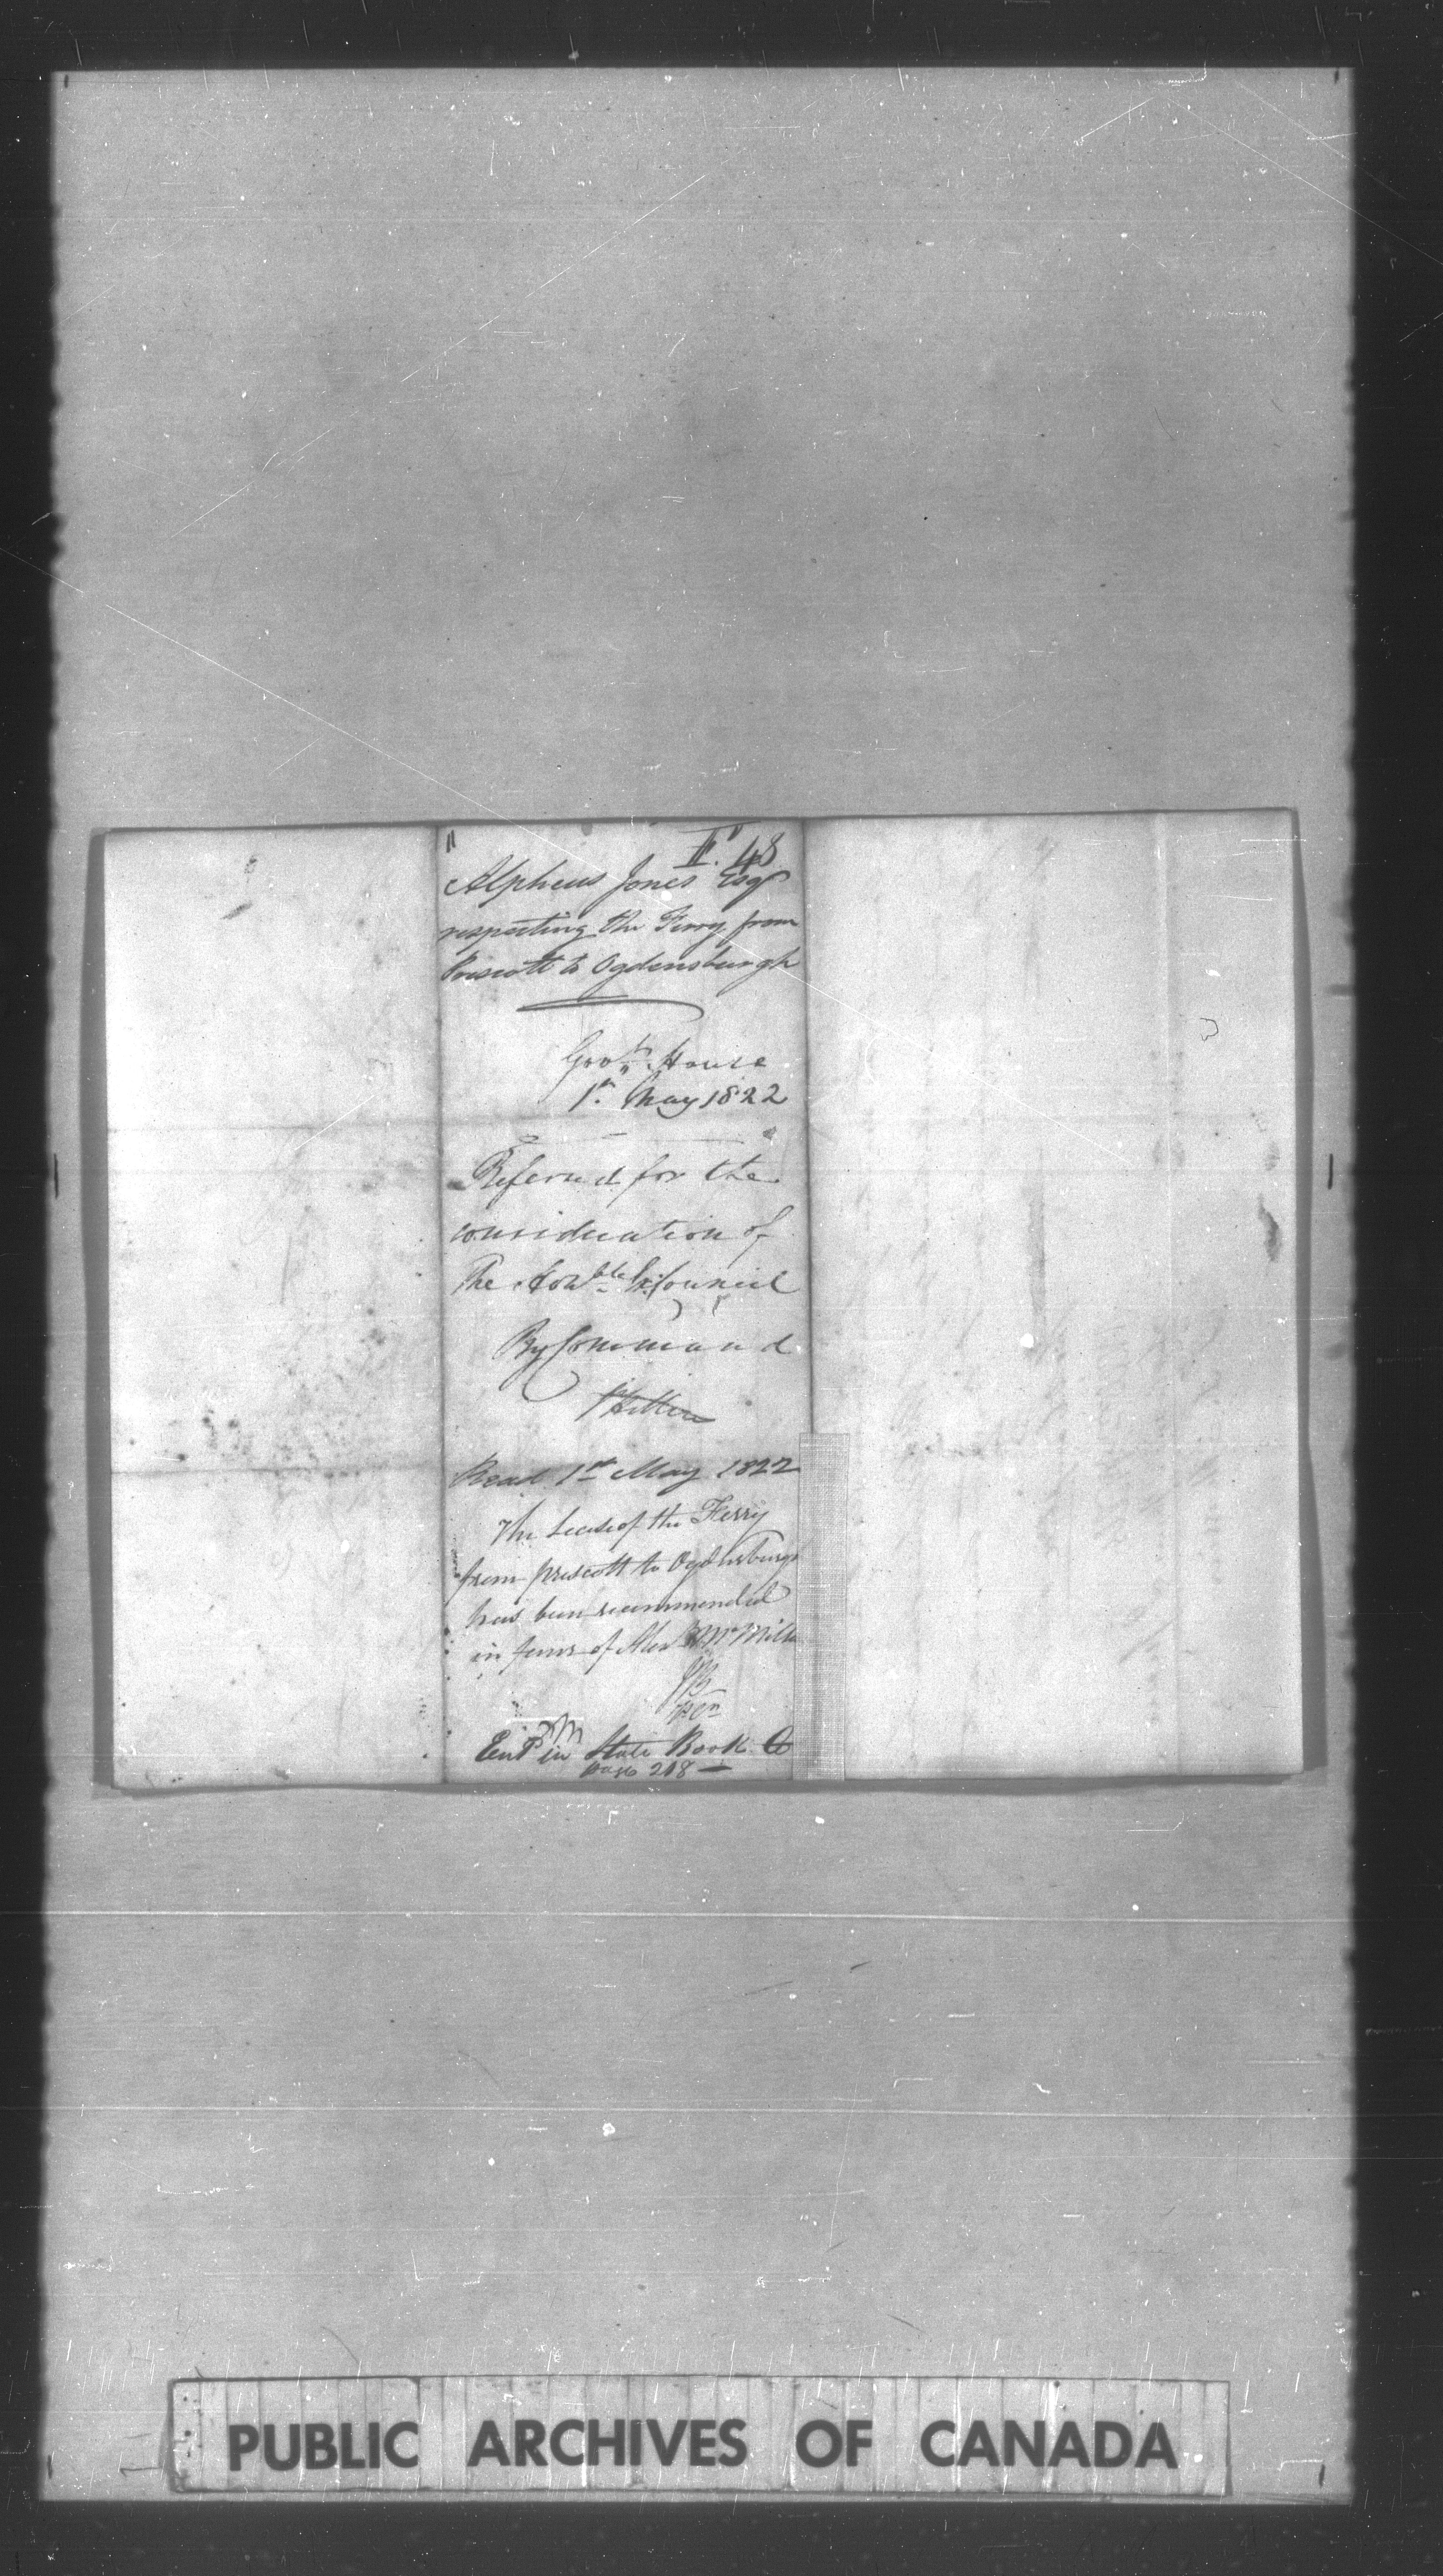 II. 48
Alpheus Jones Esqr
respecting the Ferry from
Prescott to Ogdensburgh
Govt. House
1st. May 1822
Referred for the
consideration of
The Honble Ex. Council
By Command
Read 1st May 1822
The Lease of the Ferry
from prescott to Ogdensburgh
has been recommended
in favor of Alexr McMillan
Entd in State Book
page 218
PUBLIC ARCHIVES OF CANADA